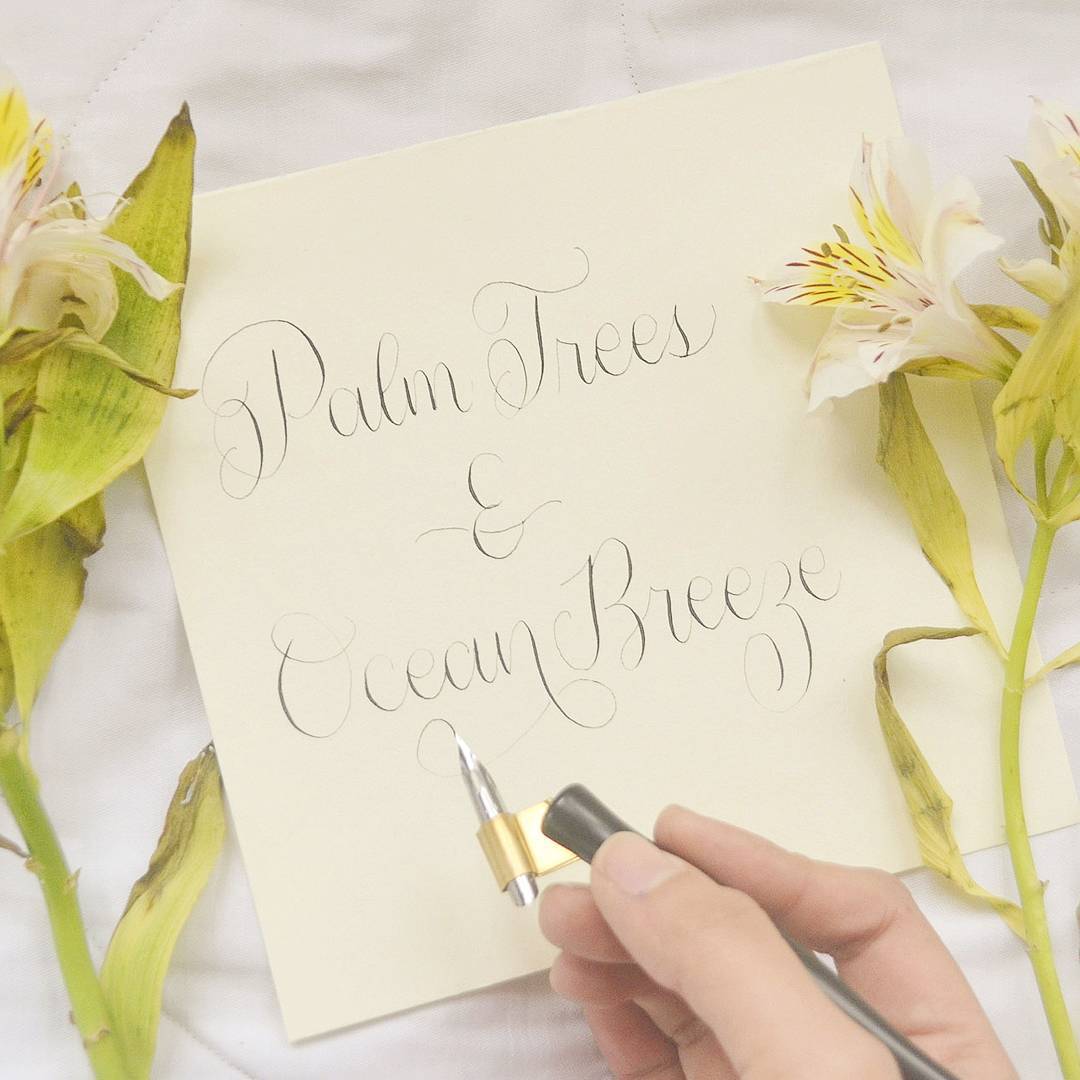 Palm Trees
&
Ocean Breeze